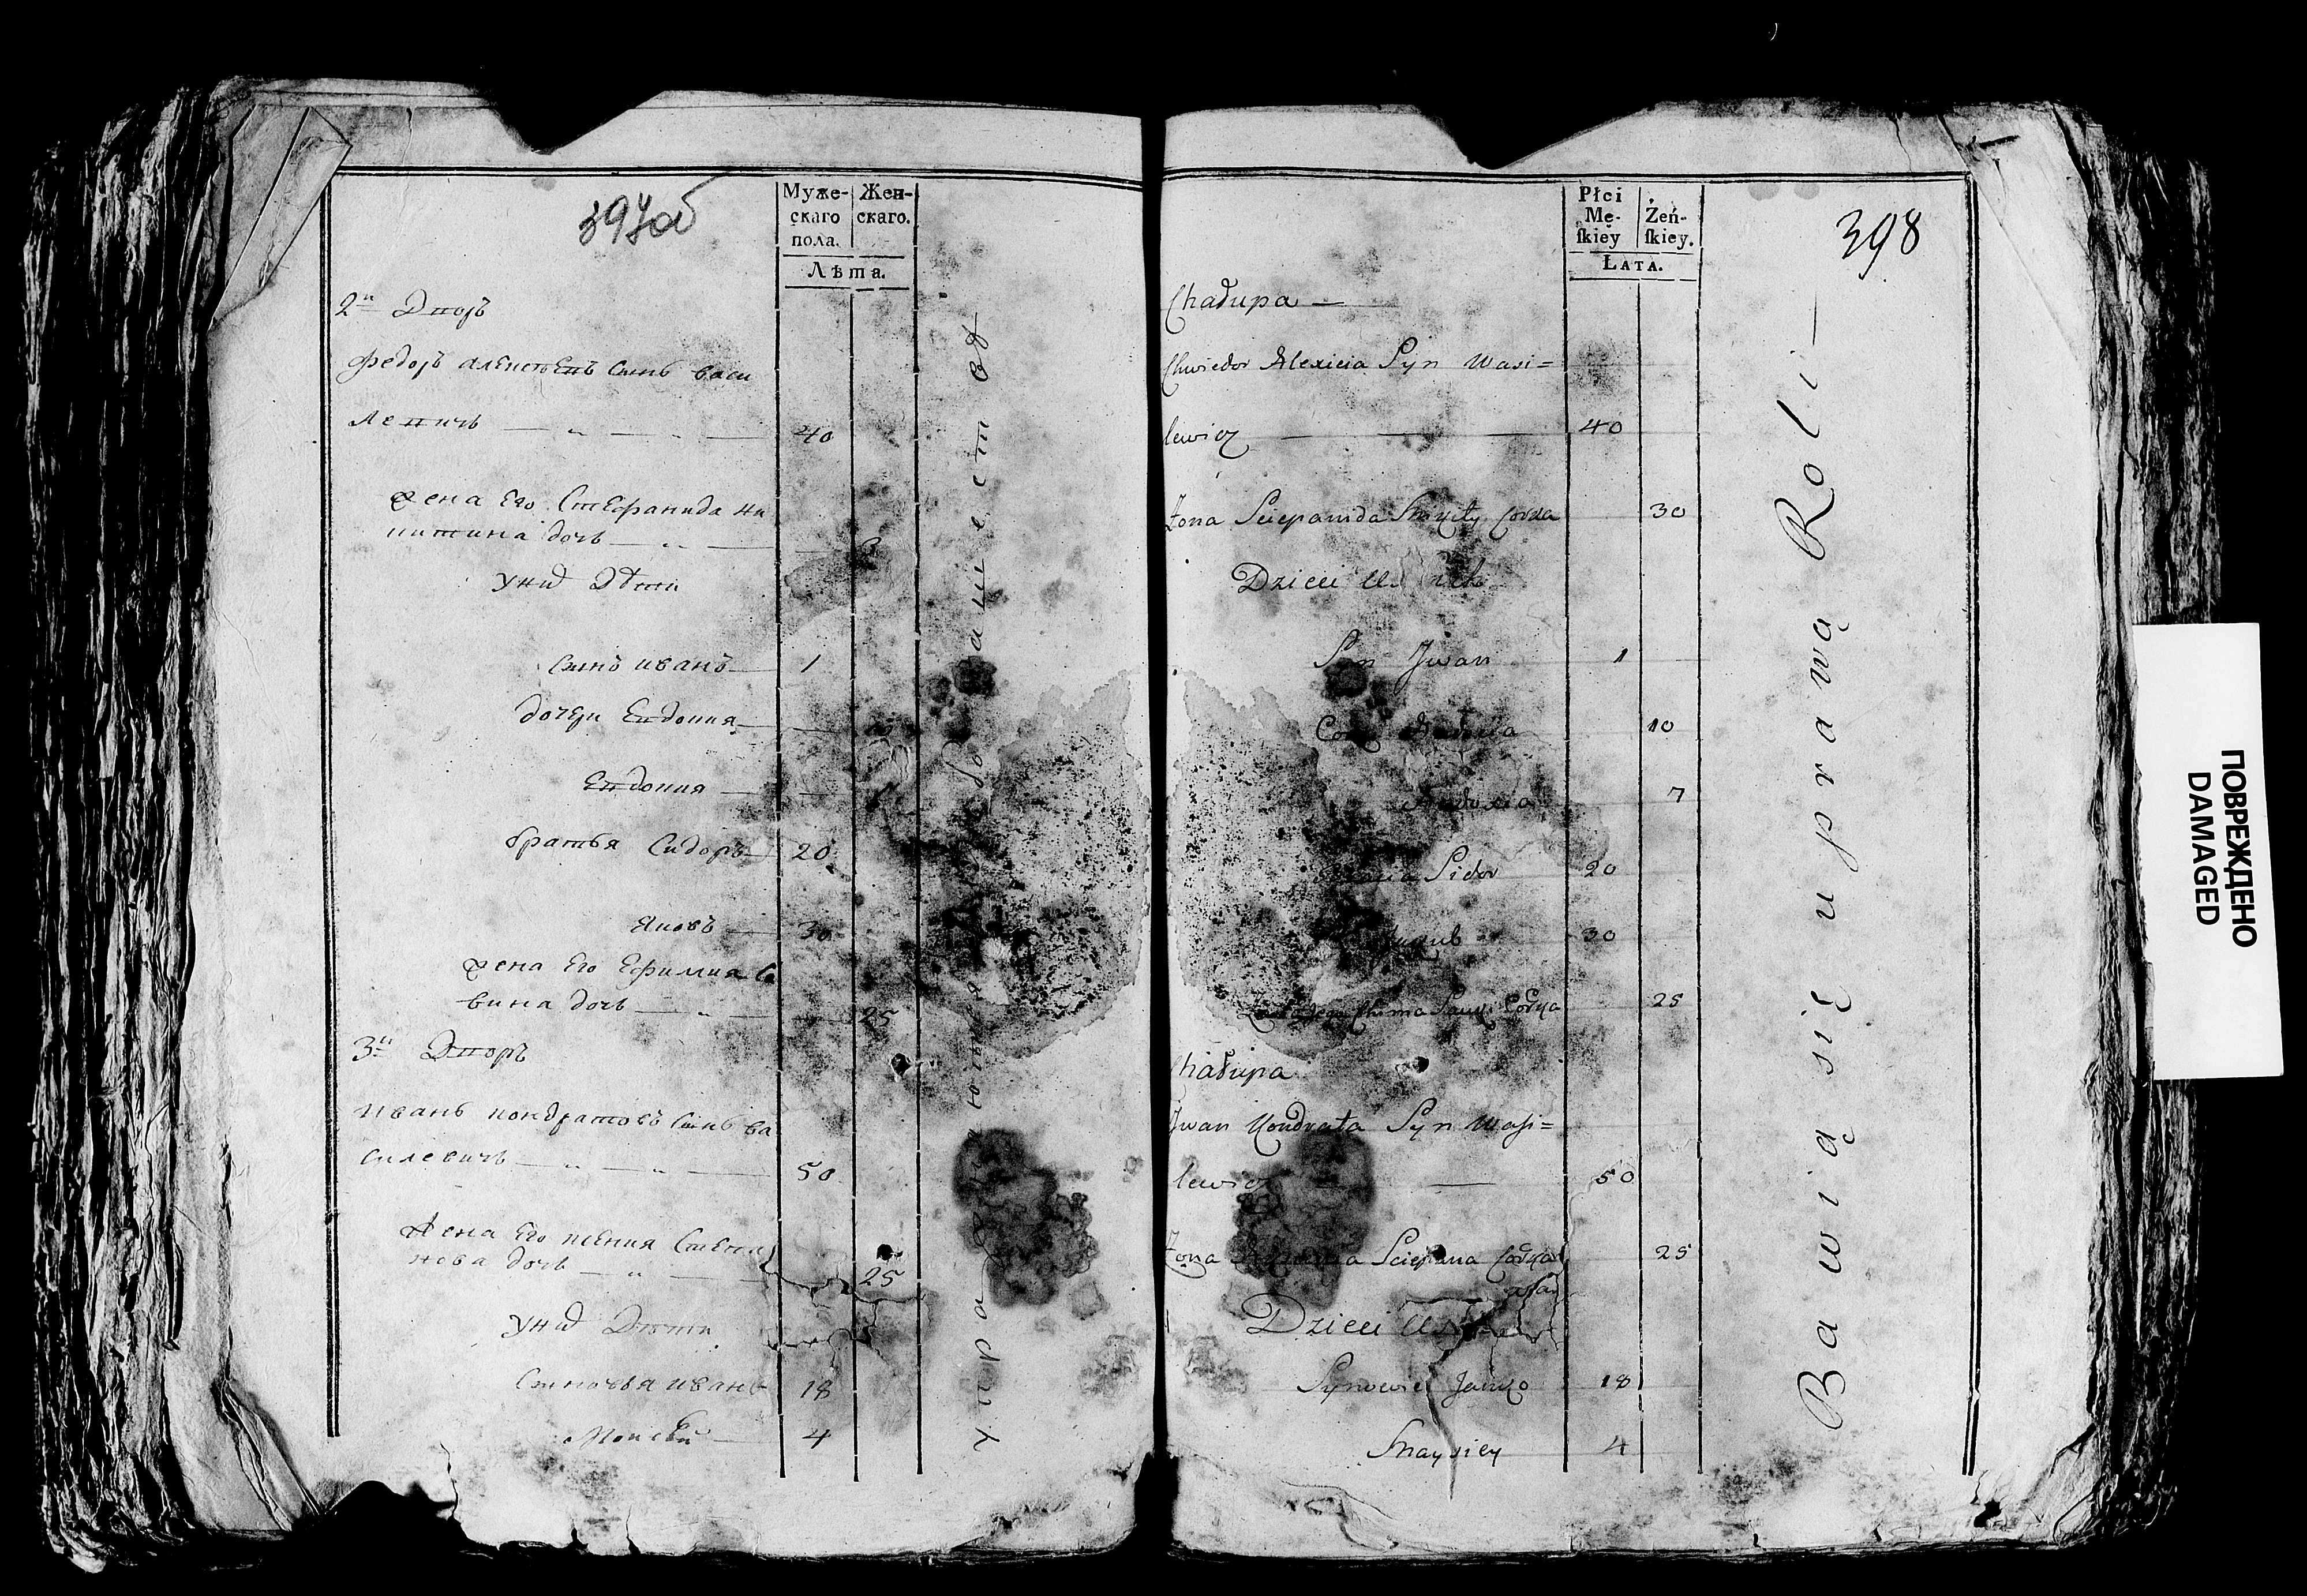 397об
Муже-
скаго
пола.
Жен-
скаго.
Лѣта.
2й Дворъ
Федоръ алексѣевъ Сынъ васи
левичъ 40
жена Его Стефанида ни
китина дочь
у нихъ Дѣти
Сынъ иванъ 1
дочери Евдокия
Евдокия
братья Сидоръ 20
Яковъ 30
жена Его Ефимия Са
вина дочь 25
3й Дворъ
иванъ кондратовъ Сынъ ва
силевичъ 50
Жена Его ксения Степа
нова дочь 25
у нихъ Дѣти
Сыновья иванъ 18
Моисей 4
398
Płci
Mę-
ſkiey
Żeń-
ſkiey.
Lata.
Chałupa
Chwiedor Alexieia Syn Wasi=
lewicz 40
Żona Sciepanida Mikity Corka 30
Dzieci U nich
Syn Jwan 1
10
Audocia 7
Bracia Sidor 20
Jakub 30
Chima Sawy Corka 25
Chałupa
Jwan Kondrata Syn Wasi=
lewicz 50
Żona Sciepana Corka 25
Dzieci U
Synowie Janko 18
Maysiey 4
Bawią się uprawą Roli
ПОВРЕЖДЕНО
DAMAGED